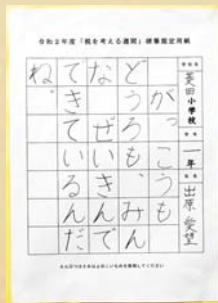 令和2年度「税を考える週間」硬筆指定用紙
学校名
菱田小学校
学年
一年
氏名
出原愛望
がっこうも
どうろも、みん
なぜいきんで
できているんだ
ね。